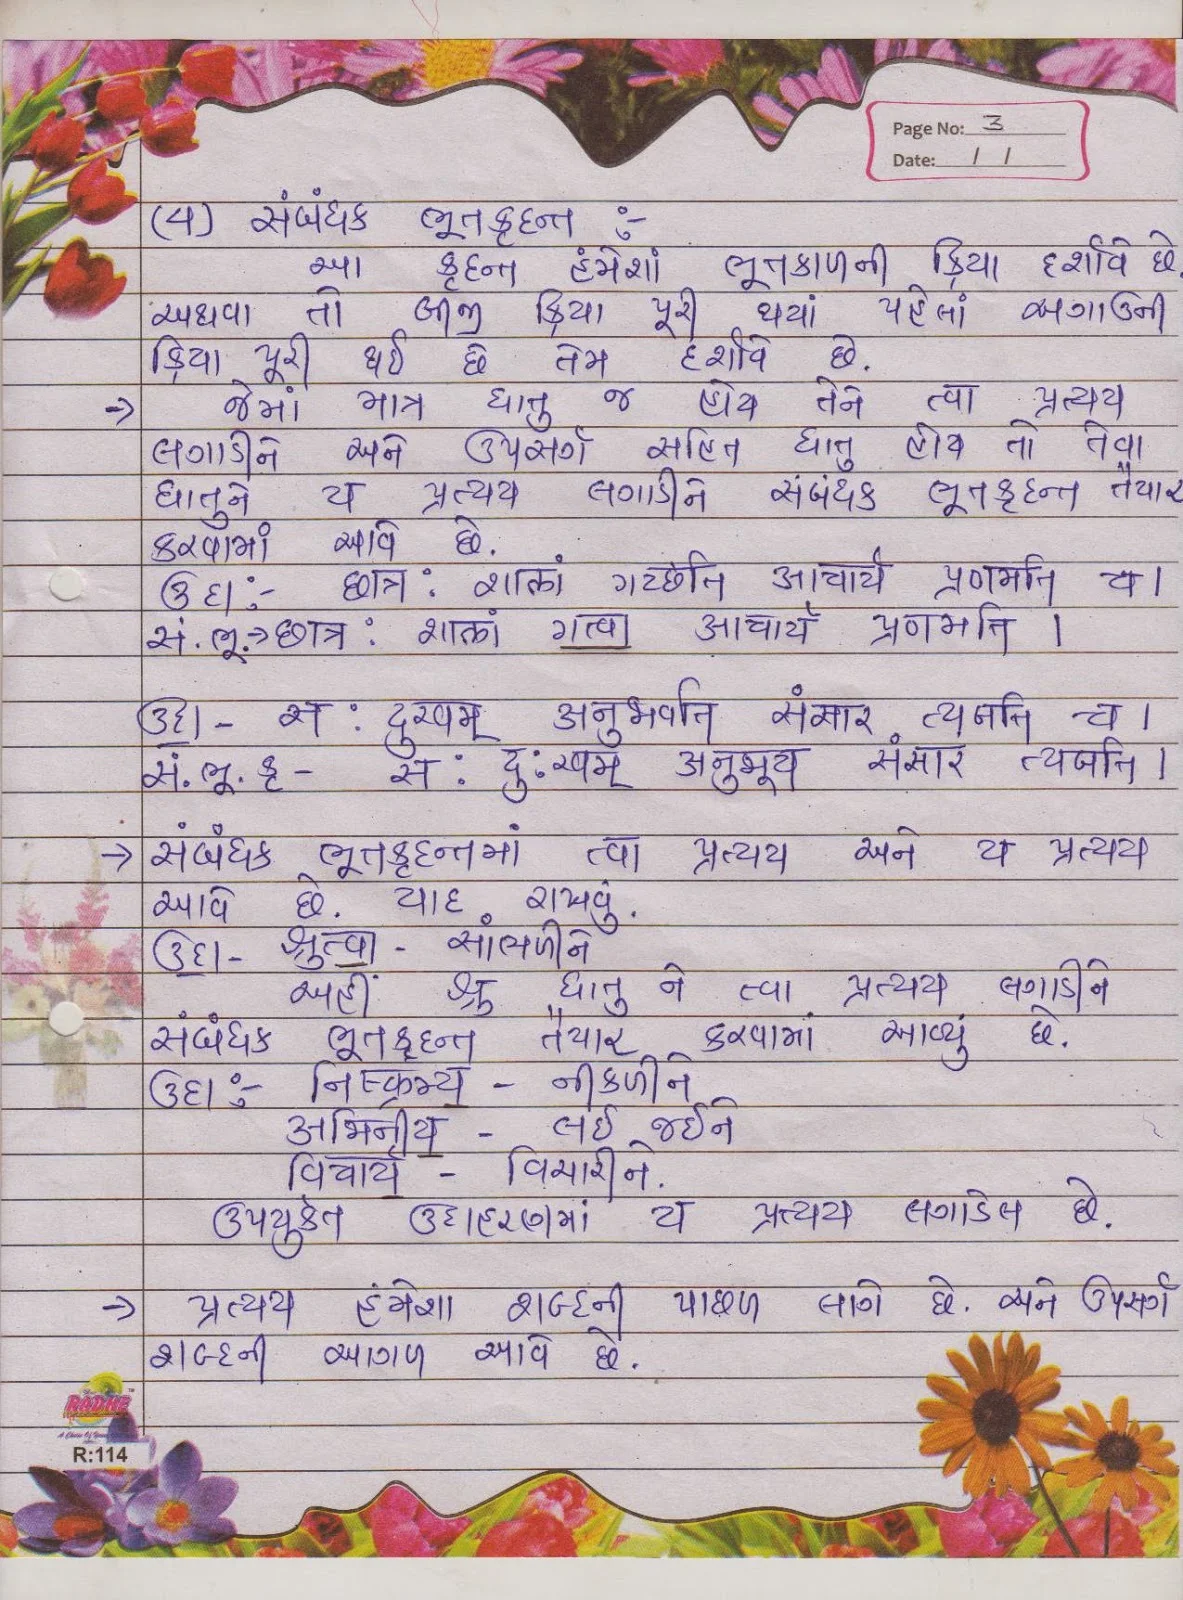 Page No: 3
Date: / /
(૫) સંબંધક ભૂતકૃદન્ત :-
આ કૃદન્ત હંમેશાં ભૂતકાળની ક્રિયા દર્શાવે છે.
અથવા તો બીજી ક્રિયા પૂરી થયાં પહેલાં અગાઉની
ક્રિયા પૂરી થઈ છે તેમ દર્શાવે છે.
→ જેમાં માત્ર ધાતુ જ હોય તેને ત્વા પ્રત્યય
લગાડીને અને ઉપસર્ગ સહિત ધાતુ હોય તો તેવા
ધાતુને ય પ્રત્યય લગાડીને સંબંધક ભૂતકૃદન્ત તૈયાર
કરવામાં આવે છે.
ઉદા:- છાત્ર: शालां गच्छति आचार्यं प्रणमति च।
સં.ભૂ.→ છાત્ર: शालां गत्वा आचार्यं प्रणमति ।
ઉદા - स: दुखम् अनुभवति संसार त्यजति च।
સં.ભૂ.કૃ - स: दु:खम् अनुभूय संसार त्यजति।
→ સંબંધક ભૂતકૃદન્તમાં ત્વા પ્રત્યય અને ય પ્રત્યય
આવે છે. યાદ રાખવું.
ઉદા - श्रुत्वा - સાંભળીને
અહીં શ્રુ ધાતુ ને ત્વા પ્રત્યય લગાડીને
સંબંધક ભૂતકૃદન્ત તૈયાર કરવામાં આવ્યું છે.
ઉદા :- निष्क्रम्य - નીકળીને
अभिनीय - લઈ જઈને
विचार्य - વિચારીને.
ઉપયુકેત ઉદાહરણમાં ય પ્રત્યય લગાડેલ છે.
→ પ્રત્યય હંમેશા શબ્દની પાછળ લાગે છે. અને ઉપસર્ગ
શબ્દની આગળ આવે છે.
RADHE
R:114